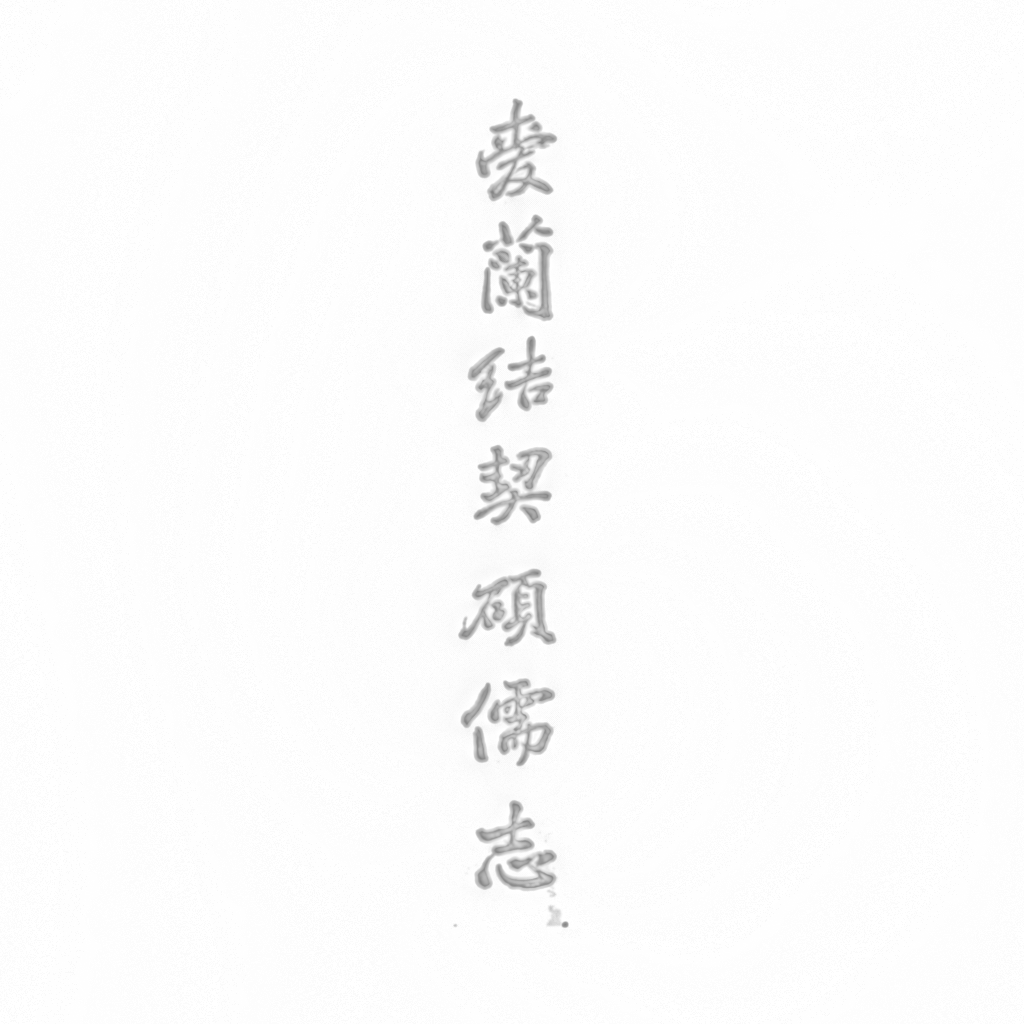 愛蘭結契碩儒志